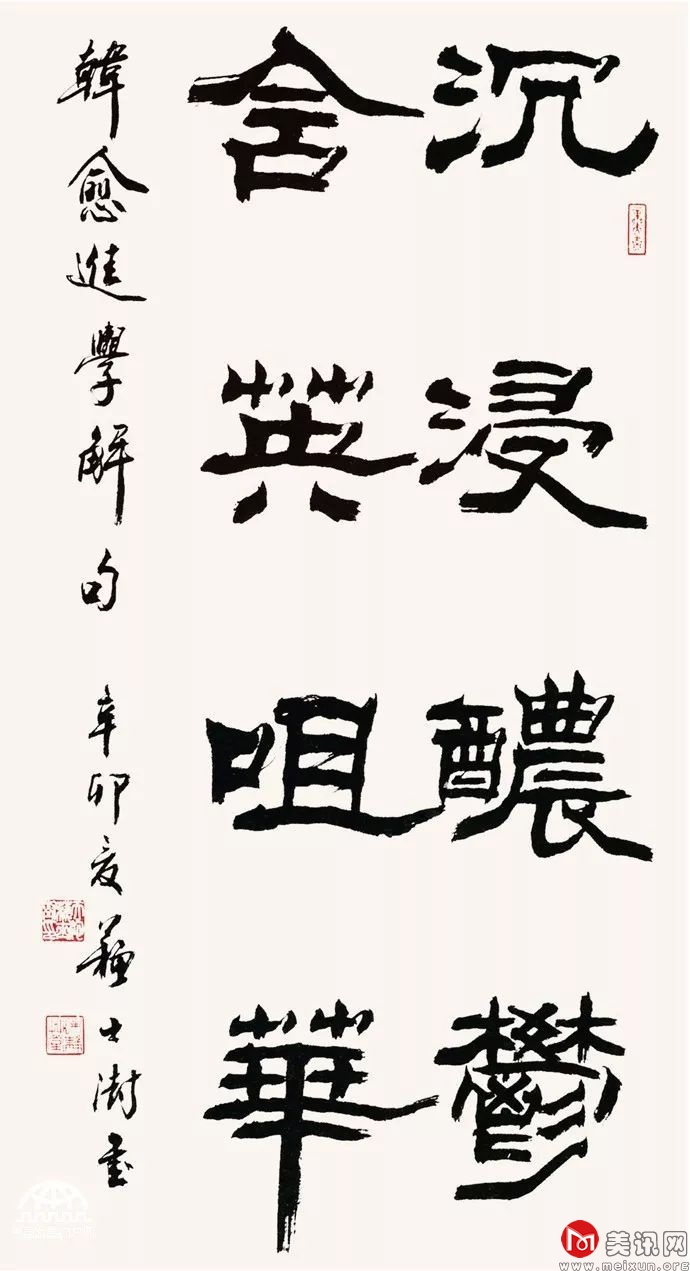 沉浸醲鬱
含英咀華
韓愈進學解句 辛卯夏蘇士澍書
美讯网
www.meixun.org